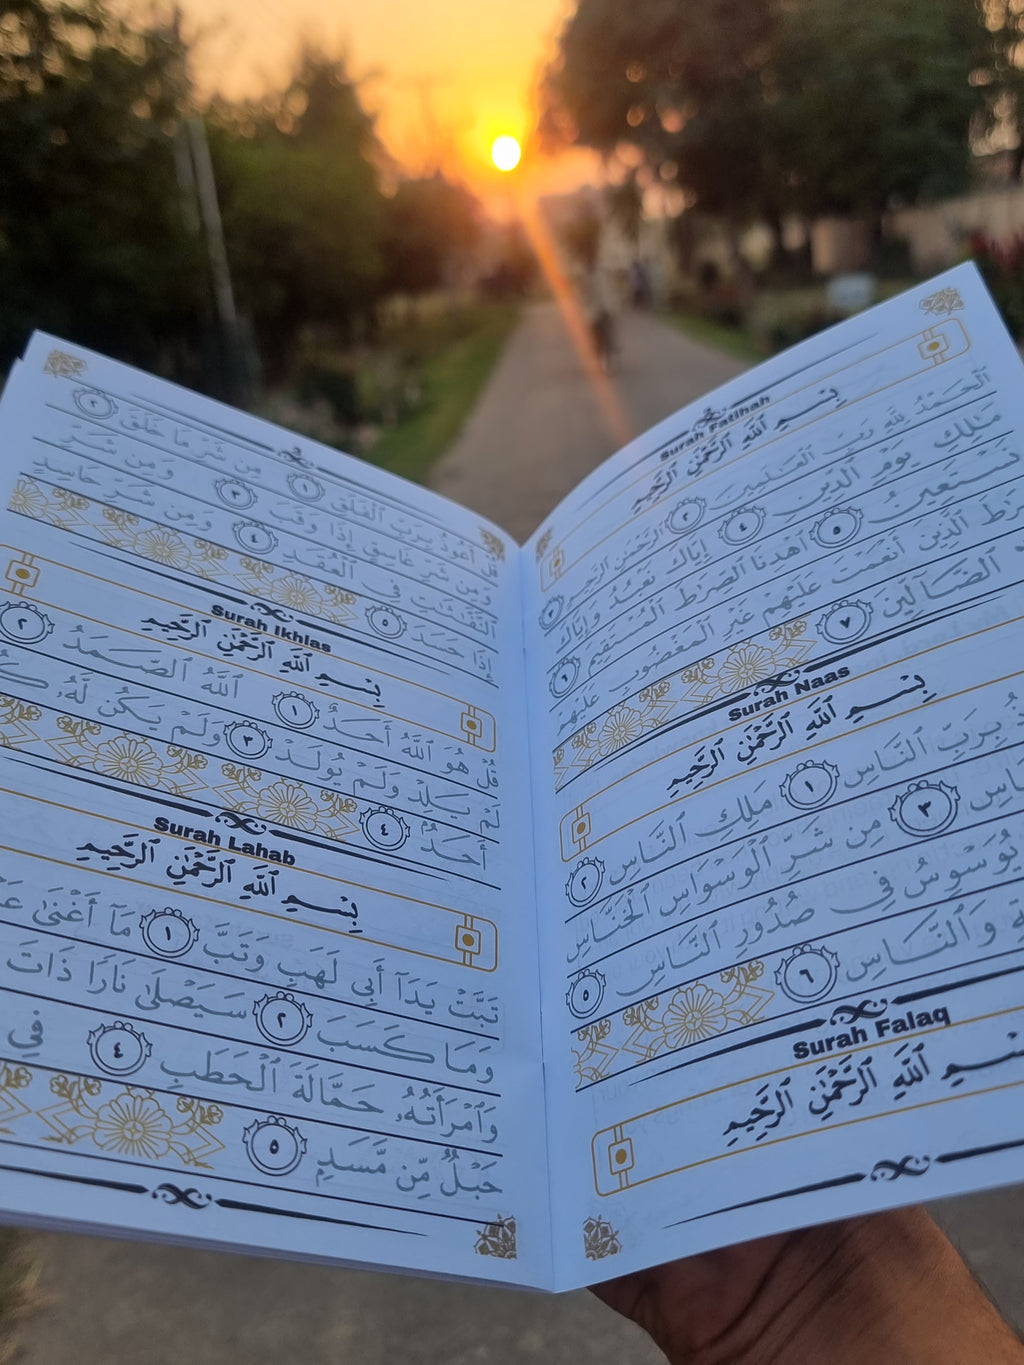 2
Surah Fatihah
بِسْمِ ٱللَّهِ ٱلرَّحْمَٰنِ ٱلرَّحِيمِ
ٱلْحَمْدُ لِلَّهِ رَبِّ ٱلْعَٰلَمِينَ ٢ ٱلرَّحْمَٰنِ ٱلرَّحِيمِ ٣
مَٰلِكِ يَوْمِ ٱلدِّينِ ٤ إِيَّاكَ نَعْبُدُ وَإِيَّاكَ
نَسْتَعِينُ ٥ ٱهْدِنَا ٱلصِّرَٰطَ ٱلْمُسْتَقِيمَ ٦
ٱلَّذِينَ أَنْعَمْتَ عَلَيْهِمْ غَيْرِ ٱلْمَغْضُوبِ عَلَيْهِمْ
ٱلضَّآلِّينَ ٧
Surah Naas
بِسْمِ ٱللَّهِ ٱلرَّحْمَٰنِ ٱلرَّحِيمِ
بِرَبِّ ٱلنَّاسِ ١ مَلِكِ ٱلنَّاسِ ٢
٣ مِن شَرِّ ٱلْوَسْوَاسِ ٱلْخَنَّاسِ
يُوَسْوِسُ فِى صُدُورِ ٱلنَّاسِ ٥
وَٱلنَّاسِ ٦
Surah Falaq
بِسْمِ ٱللَّهِ ٱلرَّحْمَٰنِ ٱلرَّحِيمِ
3
قُلْ أَعُوذُ بِرَبِّ ٱلْفَلَقِ ١ مِن شَرِّ مَا خَلَقَ ٢
وَمِن شَرِّ غَاسِقٍ إِذَا وَقَبَ ٣ وَمِن شَرِّ
ٱلنَّفَّٰثَٰتِ فِى ٱلْعُقَدِ ٤ وَمِن شَرِّ حَاسِدٍ
إِذَا حَسَدَ ٥
Surah Ikhlas
بِسْمِ ٱللَّهِ ٱلرَّحْمَٰنِ ٱلرَّحِيمِ
قُلْ هُوَ ٱللَّهُ أَحَدٌ ١ ٱللَّهُ ٱلصَّمَدُ ٢
لَمْ يَلِدْ وَلَمْ يُولَدْ ٣ وَلَمْ يَكُن لَّهُۥ
أَحَدٌۢ ٤
Surah Lahab
بِسْمِ ٱللَّهِ ٱلرَّحْمَٰنِ ٱلرَّحِيمِ
تَبَّتْ يَدَآ أَبِى لَهَبٍ وَتَبَّ ١ مَآ أَغْنَىٰ
وَمَا كَسَبَ ٢ سَيَصْلَىٰ نَارًا ذَاتَ
وَٱمْرَأَتُهُۥ حَمَّالَةَ ٱلْحَطَبِ ٤ فِى
حَبْلٌ مِّن مَّسَدٍۭ ٥